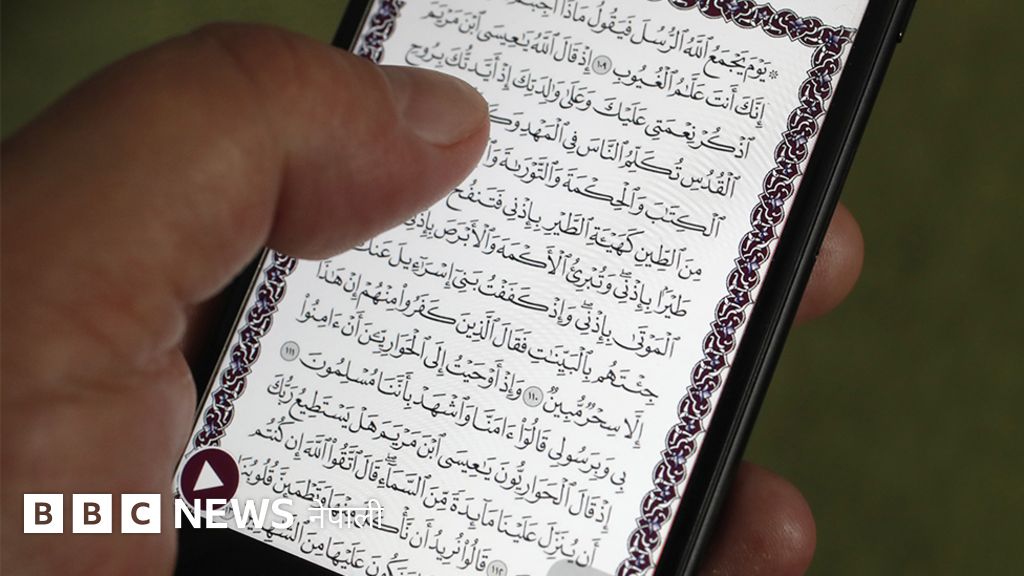 ۞ يَوْمَ يَجْمَعُ ٱللَّهُ ٱلرُّسُلَ فَيَقُولُ مَاذَآ أُجِبْتُمْ
إِنَّكَ أَنتَ عَلَّٰمُ ٱلْغُيُوبِ ١٠٩ إِذْ قَالَ ٱللَّهُ يَٰعِيسَى ٱبْنَ مَرْيَمَ
ٱذْكُرْ نِعْمَتِى عَلَيْكَ وَعَلَىٰ وَٰلِدَتِكَ إِذْ أَيَّدتُّكَ بِرُوحِ
ٱلْقُدُسِ تُكَلِّمُ ٱلنَّاسَ فِى ٱلْمَهْدِ
ٱلْكِتَٰبَ وَٱلْحِكْمَةَ وَٱلتَّوْرَىٰةَ
مِنَ ٱلطِّينِ كَهَيْـَٔةِ ٱلطَّيْرِ بِإِذْنِى فَتَنفُخُ
طَيْرًۢا بِإِذْنِى وَتُبْرِئُ ٱلْأَكْمَهَ وَٱلْأَبْرَصَ بِإِذْنِى
ٱلْمَوْتَىٰ بِإِذْنِى وَإِذْ كَفَفْتُ بَنِىٓ إِسْرَٰٓءِيلَ عَنكَ
جِئْتَهُم بِٱلْبَيِّنَٰتِ فَقَالَ ٱلَّذِينَ كَفَرُوا۟ مِنْهُمْ إِنْ هَٰذَآ
إِلَّا سِحْرٌ مُّبِينٌ ١١٠ وَإِذْ أَوْحَيْتُ إِلَى ٱلْحَوَارِيِّـۧنَ أَنْ ءَامِنُوا۟
بِى وَبِرَسُولِى قَالُوٓا۟ ءَامَنَّا وَٱشْهَدْ بِأَنَّنَا مُسْلِمُونَ ١١١
إِذْ قَالَ ٱلْحَوَارِيُّونَ يَٰعِيسَى ٱبْنَ مَرْيَمَ هَلْ يَسْتَطِيعُ رَبُّكَ
أَن يُنَزِّلَ عَلَيْنَا مَآئِدَةً مِّنَ ٱلسَّمَآءِ قَالَ ٱتَّقُوا۟ ٱللَّهَ إِن كُنتُم
١١٢ قَالُوا۟ نُرِيدُ أَن نَّأْكُلَ مِنْهَا وَتَطْمَئِنَّ قُلُوبُنَا
وَنَكُونَ عَلَيْهَا مِنَ
BBC NEWS नेपाली